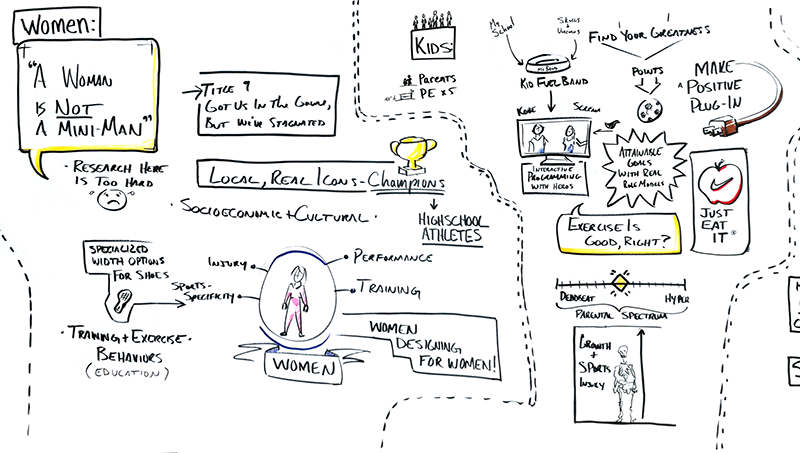 Women:
"A Woman
is Not
a Mini-Man"
Title 9
Got Us In the Game,
But We've Stagnated
· Research Here
Is Too Hard
Local, Real Icons - Champions
· Socioeconomic + Cultural ·
Highschool
Athletes
Specialized
Width Options
For Shoes
· Training + Exercise ·
Behaviors
(Education)
Injury
Sports-
Specificity
Performance
Training
Women
Women
Designing
For Women!
Kids:
Parents
PE x5
My
School
Find Your Greatness
Kid FuelBand
Points
Make
A Positive
Plug-In
Kobe
Serena
Interactive
Programming
with Heros
Attainable
Goals
with Real
Role Models
Just
Eat
It
Exercise Is
Good, Right?
Deadbeat
Hyper
Parental Spectrum
Growth
+
Sports
Injury